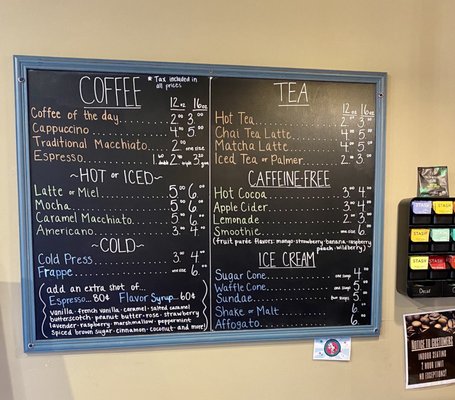 COFFEE
* Tax included in all prices
12oz 16oz
Coffee of the day 2.00 3.00
Cappuccino 4.00 5.00
Traditional Macchiato 2.00 one size
Espresso
~HOT or ICED~
Latte or Miel 5.00 6.00
Mocha 5.00 6.00
Caramel Macchiato 5.00 6.00
Americano 3.00 4.00
~COLD~
Cold Press 3.00 4.00
Frappe one size 6.00
add an extra shot of...
Espresso...80¢ Flavor Syrup...60¢
vanilla · french vanilla · caramel · salted caramel
butterscotch · peanut butter · rose · strawberry
lavender · raspberry · marshmallow · peppermint
spiced brown sugar · cinnamon · coconut · and more!
TEA
12oz 16oz
Hot Tea 2.00 3.00
Chai Tea Latte 4.00 5.00
Matcha Latte 4.00 5.00
Iced Tea or Palmer 2.00 3.00
CAFFEINE-FREE
Hot Cocoa 3.00 4.00
Apple Cider 3.00 4.00
Lemonade 2.00 3.00
Smoothie one size 6.00
(fruit purée flavors: mango · strawberry · banana · raspberry
peach · wildberry)
ICE CREAM
Sugar Cone one scoop 4.00
Waffle Cone one scoop 5.00
Sundae two scoops 5.00
Shake or Malt 6.00
Affogato 6.00
STASH STASH
STASH STASH
STASH STASH
Decaf
NOTICE TO CUSTOMERS
INDOOR SEATING
2 HOUR LIMIT
NO EXCEPTIONS!